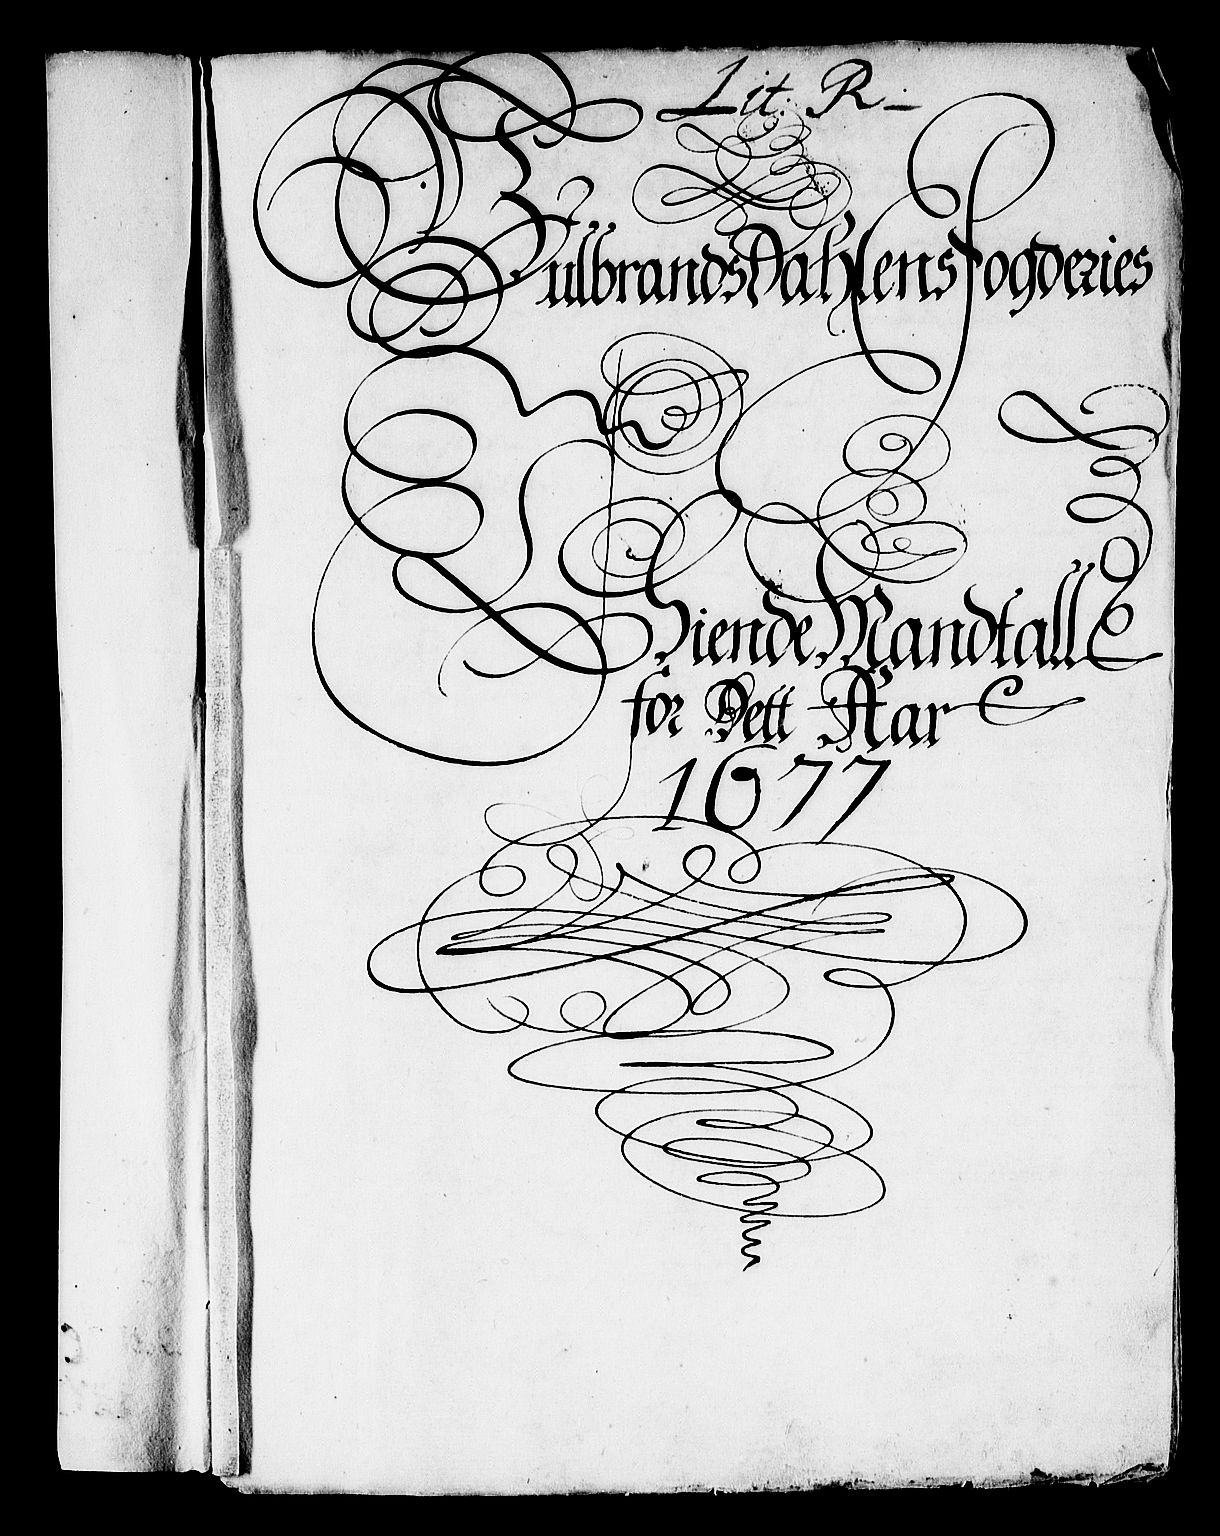 Lit. R:
Gulbrands Dahlens fogderies
Thiende Mandtall
for Dett Aar
1677